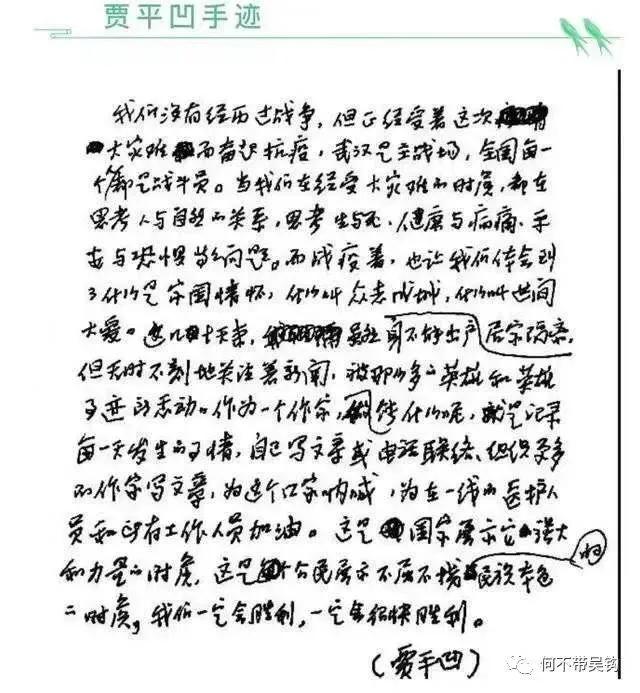 贾平凹手迹
我们没有经历过战争，但正经受着这次
大灾难而奋起抗疫，武汉是主战场，全国每一
个都是战斗员。当我们在经受大灾难的时候，都在
思考人与自然的关系，思考生与死、健康与病痛、平
安与恐惧等问题。而战疫着，也让我们体会到
了什么是家国情怀，什么叫众志成城，什么叫世间
大爱。这几十天来，虽然自不能出户居家隔离，
但无时不刻地关注着新闻，被那么多的英雄和英雄
事迹所感动。作为一个作家，能做什么呢，就是记录
每一天发生的事情，自己写文章或电话联络、组织更多
的作家写文章，为这个国家呐喊，为在一线的医护人
员和所有工作人员加油。这是国家展示它强大
和力量的时候，这是个公民展示不屈不挠的民族本色
的时候，我们一定会胜利，一定会很快胜利。
（贾平凹）
何不带吴钩